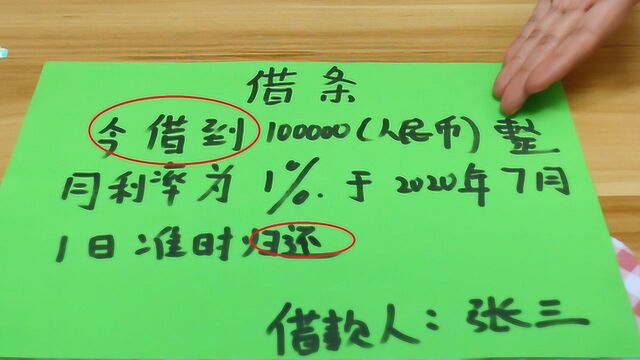 借条
今借到100000(人民币)整
月利率为1%.于2020年7月
1日准时归还
借款人:张三